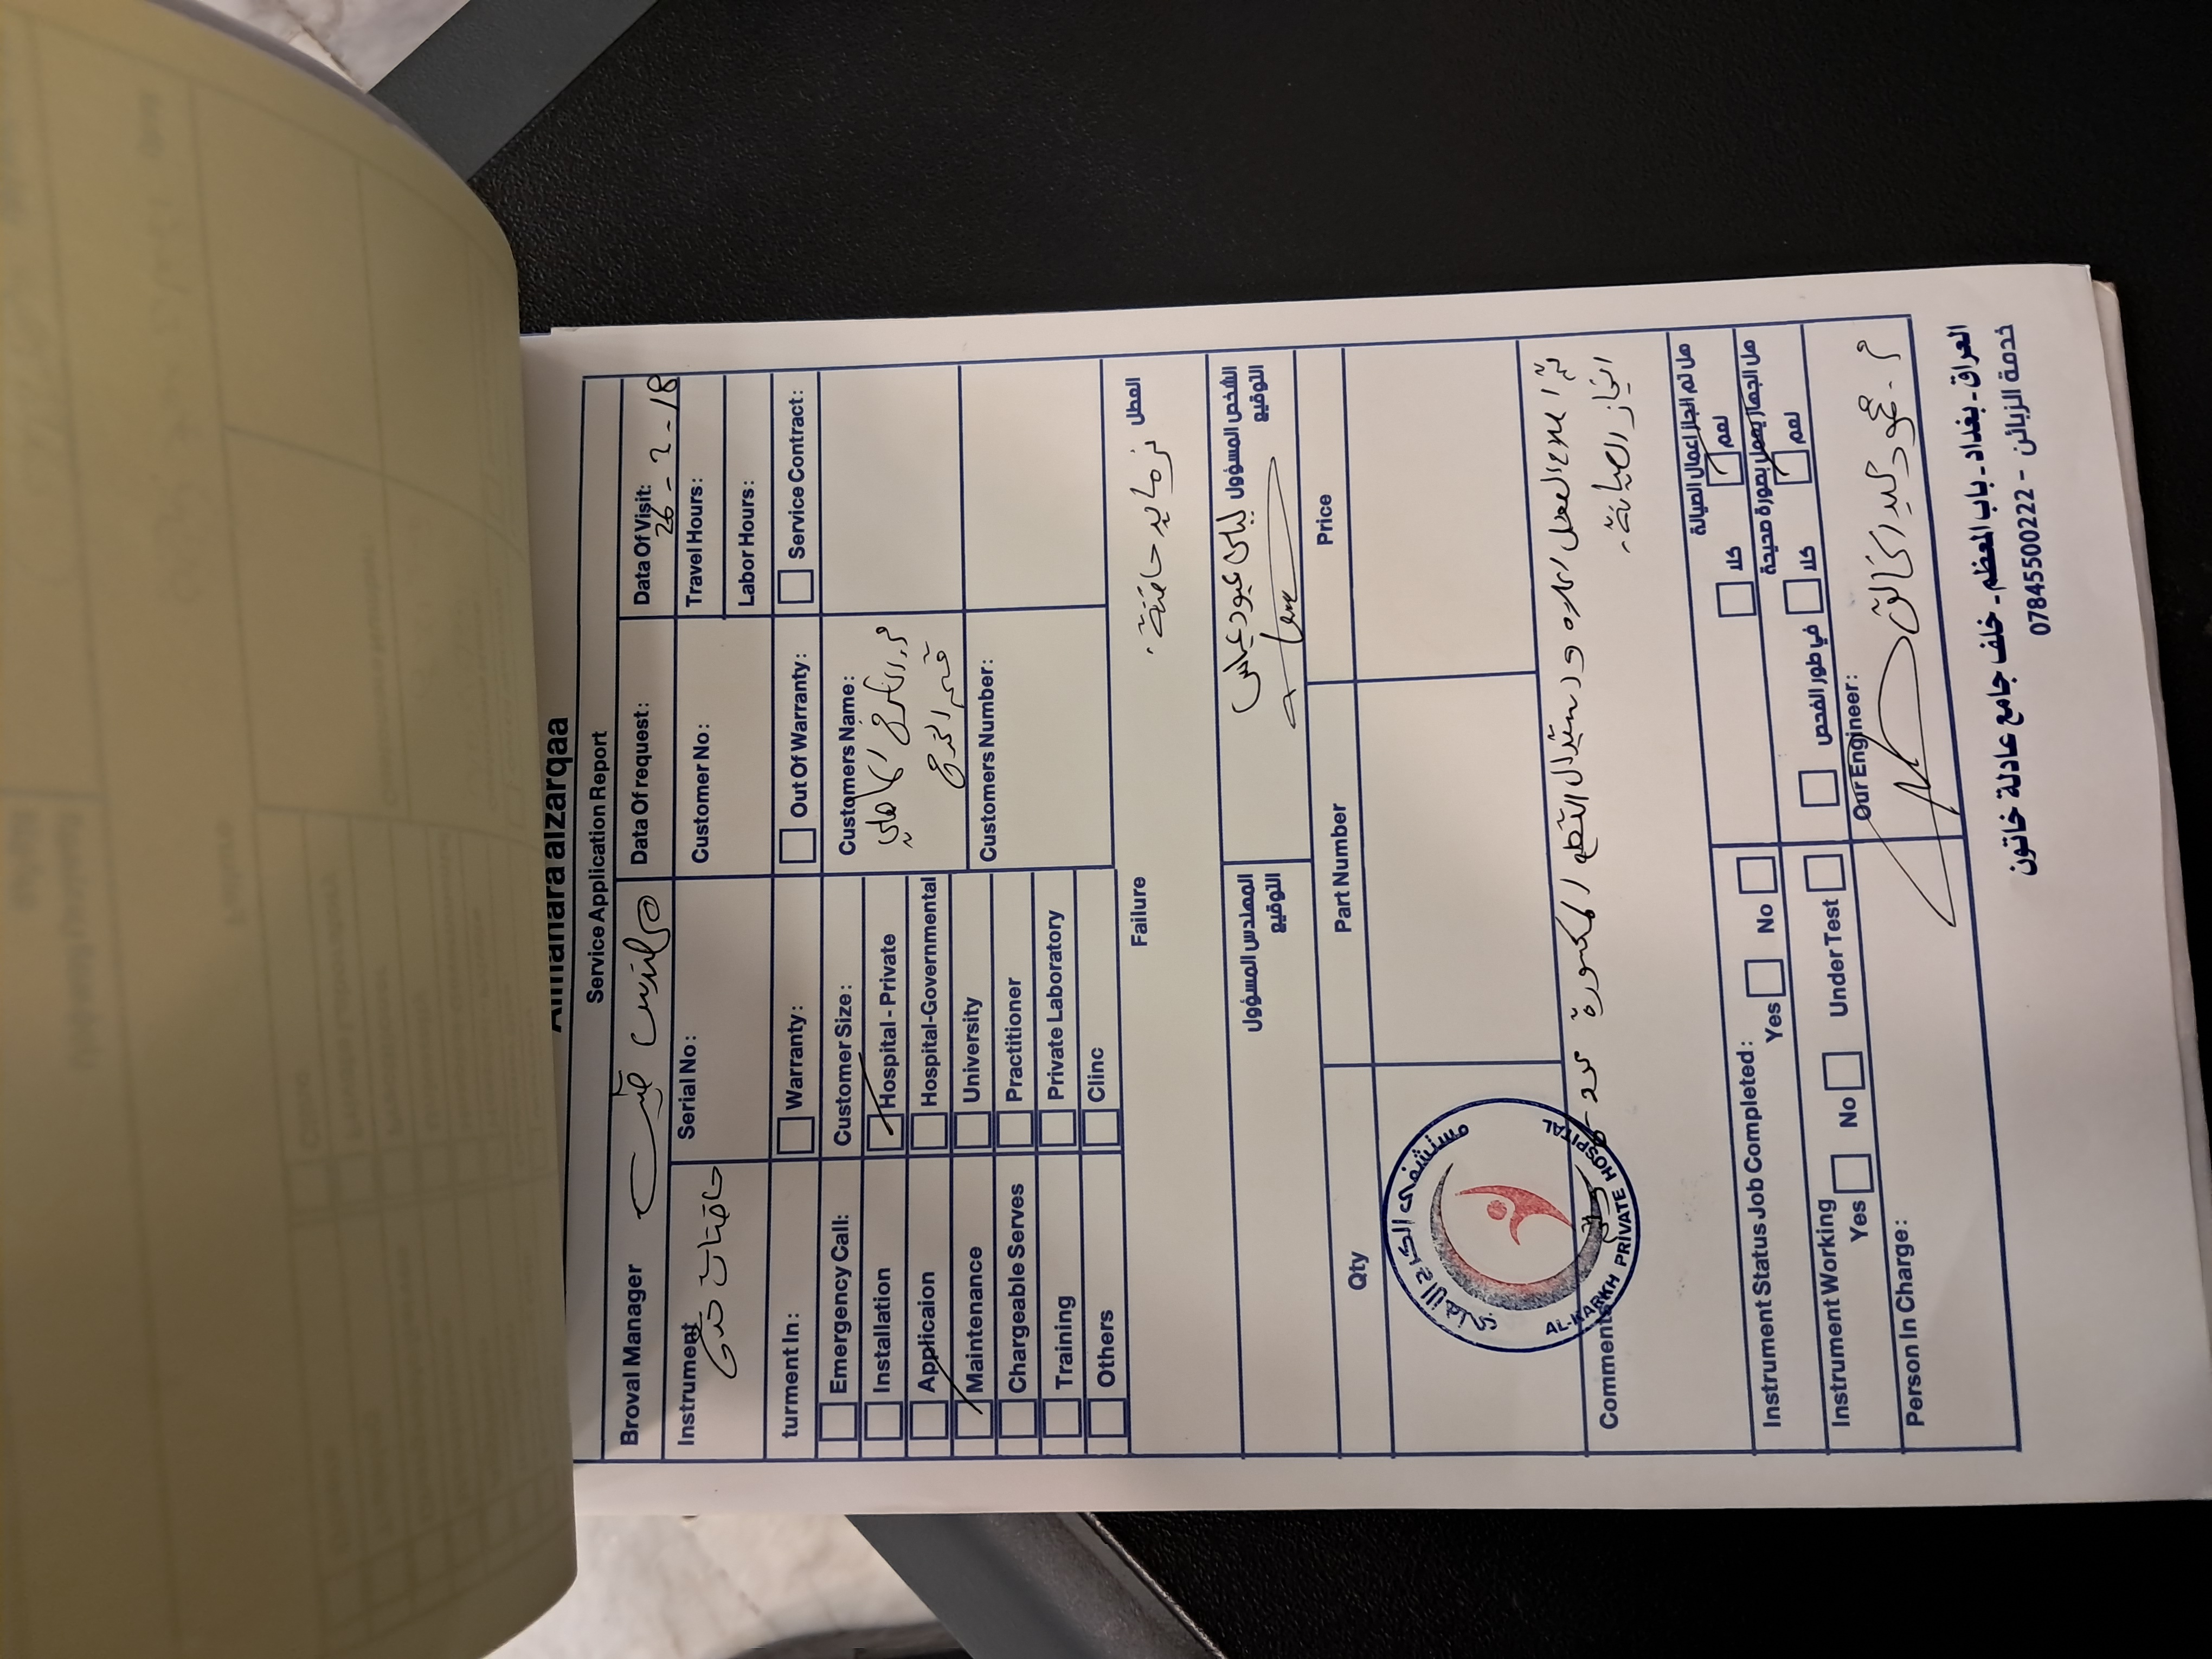 Almanara alzarqaa
Service Application Report
Broval Manager
Data Of request:
Data Of Visit:
26 - 2 - 18
Instrument
حاضنات خدج
Serial No:
Customer No:
Travel Hours:
Labor Hours:
turment In:
Warranty:
Out Of Warranty:
Service Contract:
Emergency Call:
Customer Size:
Customers Name:
Installation
Hospital - Private
م. الكرخ الاهلي
Applicaion
Hospital-Governmental
قسم الخدج
Maintenance
University
Customers Number:
Chargeable Serves
Practitioner
Training
Private Laboratory
Others
Clinc
Failure
العطل
حاضنة.
المهندس المسؤول
التوقيع
الشخص المسؤول
ليلى عبود عباس
التوقيع
Qty
Part Number
Price
مستشفى الكرخ الأهلي
AL-KARKH PRIVATE HOSPITAL
Comments
تم اصلاح العطل واستبدال القطع المكسورة عدد
انجاز الصيانة.
Instrument Status Job Completed:
Yes
No
هل تم انجاز اعمال الصيانة
كلا
نعم
Instrument Working
Yes
No
Under Test
هل الجهاز يعمل بصورة صحيحة
في طور الفحص
كلا
نعم
Person In Charge:
Our Engineer:
العراق - بغداد - باب المعظم - خلف جامع عادلة خاتون
خدمة الزبائن - 07845500222